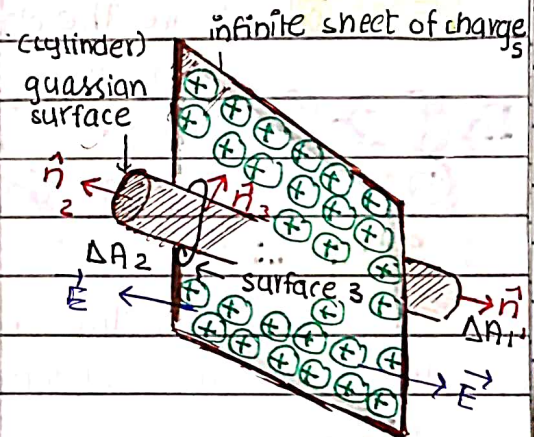 infinite sheet of charges
(cylinder)
guassian
surface
n̂
2
n̂3
ΔA2
surface 3
E⃗
n⃗
ΔA1
E⃗